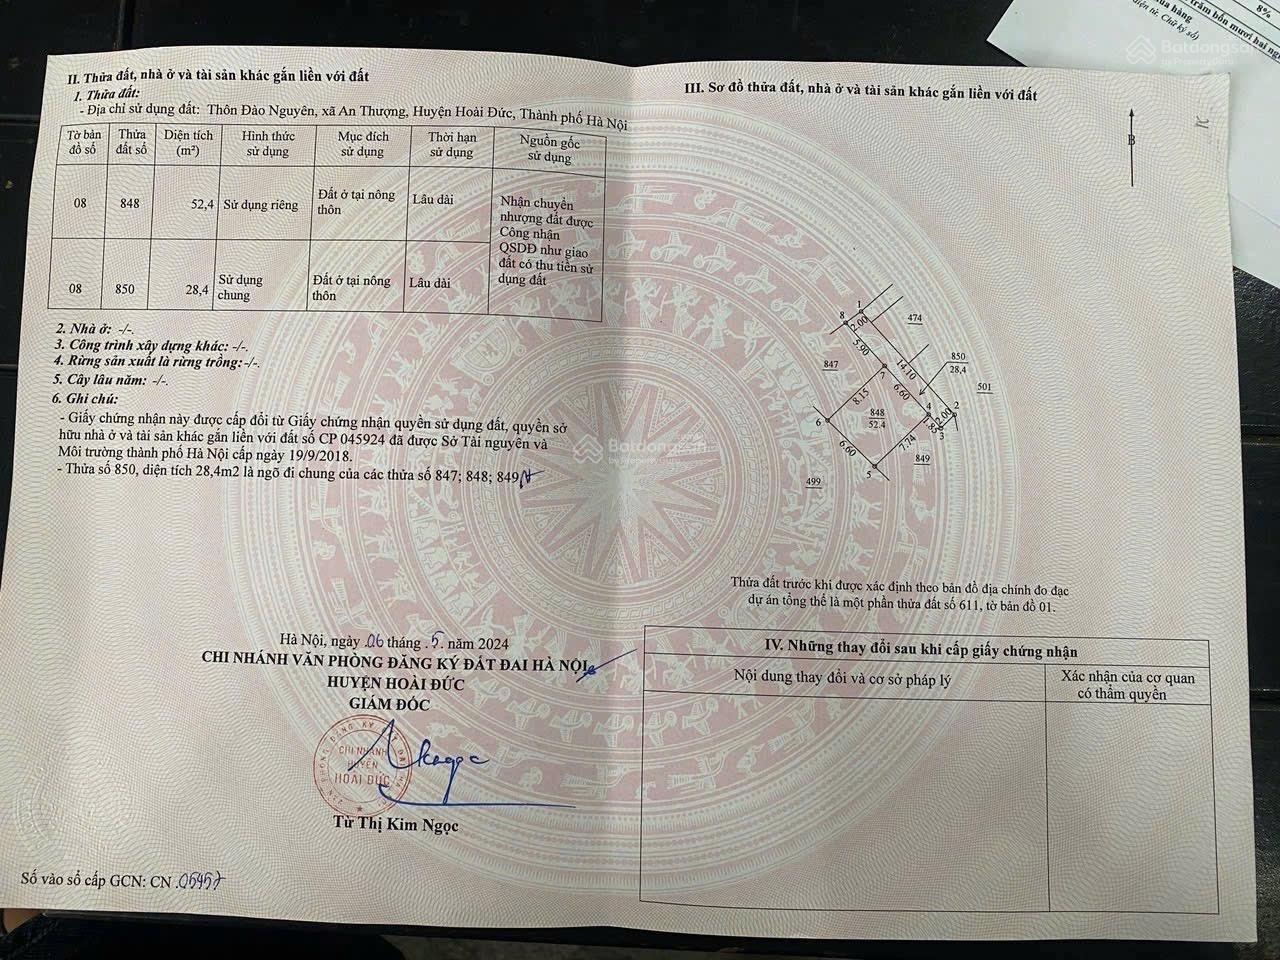 II. Thửa đất, nhà ở và tài sản khác gắn liền với đất
1. Thửa đất:
- Địa chỉ sử dụng đất: Thôn Đào Nguyên, xã An Thượng, Huyện Hoài Đức, Thành phố Hà Nội
Tờ bản đồ số | Thửa đất số | Diện tích (m²) | Hình thức sử dụng | Mục đích sử dụng | Thời hạn sử dụng | Nguồn gốc sử dụng
08 | 848 | 52,4 | Sử dụng riêng | Đất ở tại nông thôn | Lâu dài | Nhận chuyển nhượng đất được Công nhận QSDĐ như giao đất có thu tiền sử dụng đất
08 | 850 | 28,4 | Sử dụng chung | Đất ở tại nông thôn | Lâu dài
2. Nhà ở: -/-.
3. Công trình xây dựng khác: -/-.
4. Rừng sản xuất là rừng trồng: -/-.
5. Cây lâu năm: -/-.
6. Ghi chú:
- Giấy chứng nhận này được cấp đổi từ Giấy chứng nhận quyền sử dụng đất, quyền sở
hữu nhà ở và tài sản khác gắn liền với đất số CP 045924 đã được Sở Tài nguyên và
Môi trường thành phố Hà Nội cấp ngày 19/9/2018.
- Thửa số 850, diện tích 28,4m2 là ngõ đi chung của các thửa số 847; 848; 849
Hà Nội, ngày 06 tháng 5 năm 2024
CHI NHÁNH VĂN PHÒNG ĐĂNG KÝ ĐẤT ĐAI HÀ NỘI
HUYỆN HOÀI ĐỨC
GIÁM ĐỐC
CHI NHÁNH
HUYỆN
HOÀI ĐỨC
Từ Thị Kim Ngọc
Số vào sổ cấp GCN: CN 05457
III. Sơ đồ thửa đất, nhà ở và tài sản khác gắn liền với đất
B
1
8
2.00
474
5.90
847
7
14.10
850
28,4
501
8.15
6.60
848
52.4
4
2
2.00
1.85
3
6
6.60
7.74
849
5
499
Thửa đất trước khi được xác định theo bản đồ địa chính đo đạc
dự án tổng thể là một phần thửa đất số 611, tờ bản đồ 01.
IV. Những thay đổi sau khi cấp giấy chứng nhận
Nội dung thay đổi và cơ sở pháp lý | Xác nhận của cơ quan có thẩm quyền
8%
trăm bốn mươi hai
ua hàng
điện tử. Chữ ký số)
Batdongsan
by PropertyGuru
Batdongsan
by PropertyGuru